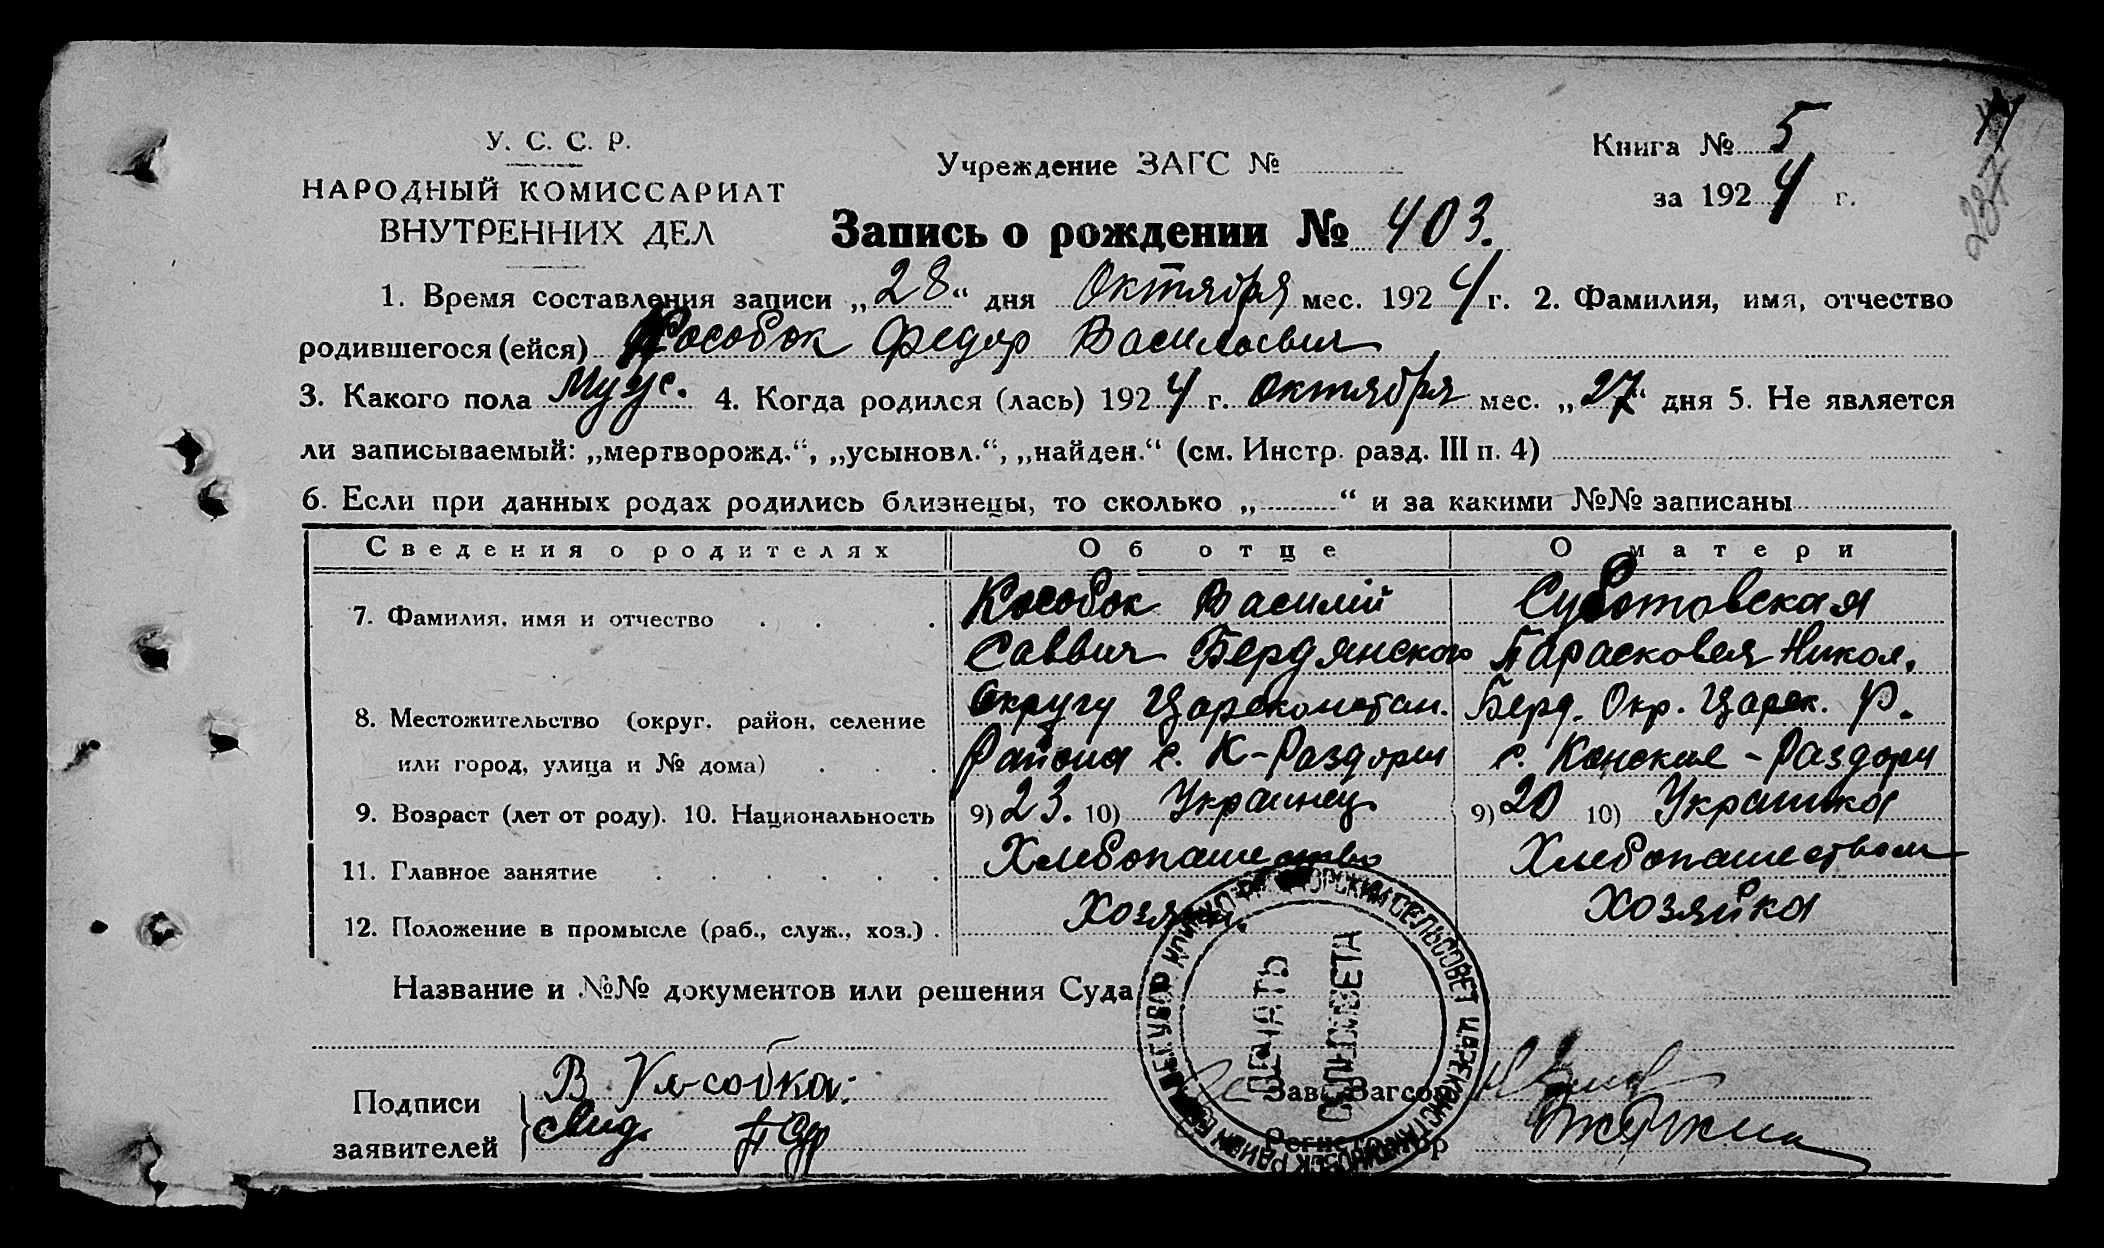 У. С. С. Р.
НАРОДНЫЙ КОМИССАРИАТ
ВНУТРЕННИХ ДЕЛ
Учреждение ЗАГС №
Книга № 5
за 1924 г.
Запись о рождении № 403.
1. Время составления записи „28“ дня Октября мес. 1924 г. 2. Фамилия, имя, отчество
родившегося (ейся) Кособок Федор Васильевич
3. Какого пола муж. 4. Когда родился (лась) 1924 г. Октября мес. „27“ дня 5. Не является
ли записываемый: „мертворожд.“, „усыновл.“, „найден.“ (см. Инстр. разд. III п. 4)
6. Если при данных родах родились близнецы, то сколько „ “ и за какими №№ записаны
Сведения о родителях Об отце О матери
7. Фамилия, имя и отчество Кособок Василий Суботовская
Саввич Бердянского Парасковея Никол.
8. Местожительство (округ, район, селение Округу Царсконстан. Берд. Окр. Царск. Р.
или город, улица и № дома) Района с. К-Раздоры с. Конские-Раздоры
9. Возраст (лет от роду). 10. Национальность 9) 23. 10) Украинец 9) 20 10) Украинка
11. Главное занятие Хлебопашество Хлебопашеством
12. Положение в промысле (раб., служ., хоз.) Хозяин. Хозяйка
Название и №№ документов или решения Суда
ПЕЧАТЬ
СЕЛЬСОВЕТ ЦАРЕКОНСТАНТИНОВСК РАЙОН
Подписи
заявителей
Зав. Загсом
Регистратор